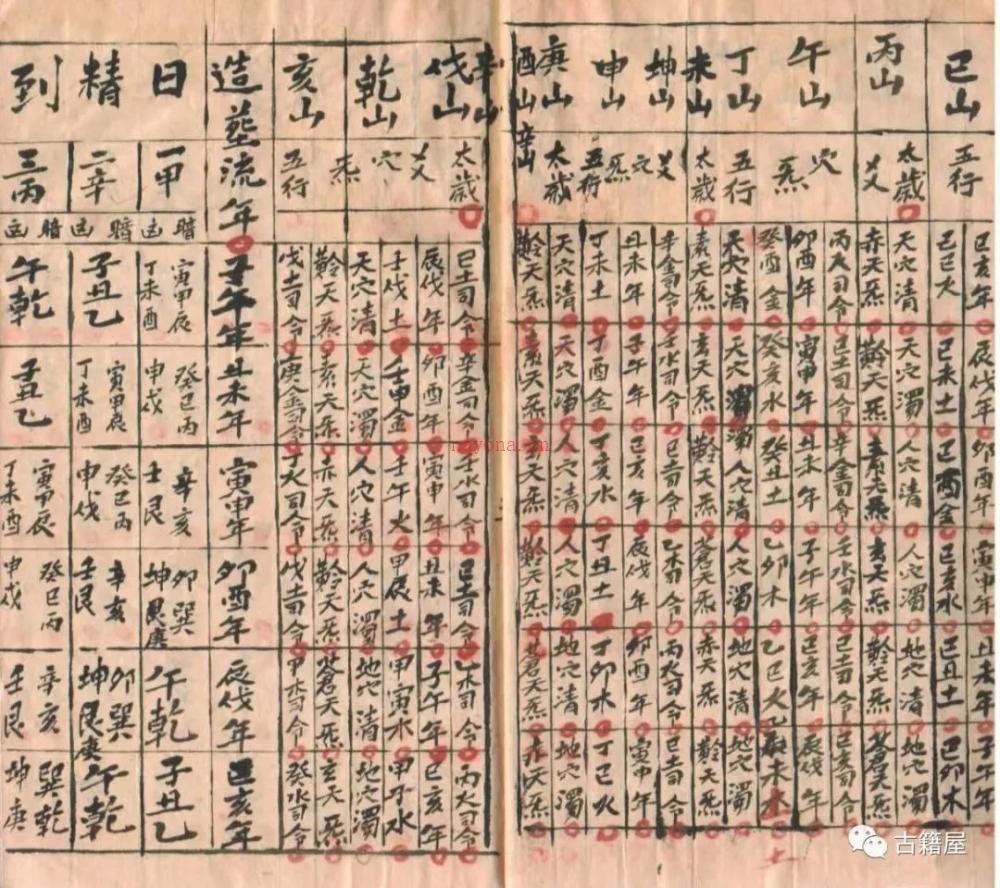 巳山
丙山
午山
丁山
未山
坤山
申山
庚山
酉山
辛山
五行
太歲
爻
穴
炁
五行
太歲
爻
穴
炁
五行
太歲
巳亥年 辰伐年 卯酉年 寅申年 丑未年 子午年
己巳火 己未土 己酉金 己亥水 己丑土 己卯木
天穴清 天穴濁 人穴清 人穴濁 地穴清 地穴濁
赤天炁 黅天炁 素天炁 玄天炁 黅天炁 蒼天炁
丙火司令 己土司令 辛金司令 壬水司令 己土司令
卯酉年 寅申年 丑未年 子午年 巳亥年 辰伐年
癸酉金 癸亥水 癸丑土 乙卯木 乙巳火
天穴清 天穴濁 人穴清 人穴濁 地穴清 地穴濁
素天炁 玄天炁 黅天炁 蒼天炁 赤天炁 黅天炁
辛金司令 壬水司令 己土司令 乙木司令 丙火司令 己土司令
丑未年 子午年 巳亥年 辰伐年 卯酉年 寅申年
丁未土 丁酉金 丁亥水 丁丑土 丁卯木 丁巳火
天穴清 天穴濁 人穴清 人穴濁 地穴清 地穴濁
黅天炁 素天炁 玄天炁 黅天炁 蒼天炁 赤天炁
辛山
伐山
乾山
亥山
太歲
爻
穴
炁
五行
己土司令 辛金司令 壬水司令 己土司令 乙木司令 丙火司令
辰伐年 卯酉年 寅申年 丑未年 子午年 巳亥年
壬伐土 壬申金 壬午火 甲辰土 甲寅木 甲子水
天穴清 天穴濁 人穴清 人穴濁 地穴清 地穴濁
黅天炁 素天炁 赤天炁 黅天炁 蒼天炁 玄天炁
戊土司令 庚金司令 丁火司令 戊土司令 甲木司令 癸水司令
造葬流年
子午年 丑未年 寅申年 卯酉年 辰伐年 巳亥年
日 一甲 暗 凶
寅甲辰 丁未酉
癸巳丙 申戌
辛亥 壬艮
卯巽 坤艮庚
午乾
子丑乙
精 二辛 暗 凶
子丑乙
寅甲辰 丁未酉
癸巳丙 申伐
辛亥 壬艮
卯巽 坤艮庚
午乾
到 三丙 暗 凶
午乾
子丑乙
寅甲辰 丁未酉
癸巳丙 申戌
辛亥 壬艮
巽乾 坤庚
nayona.cn
古籍屋